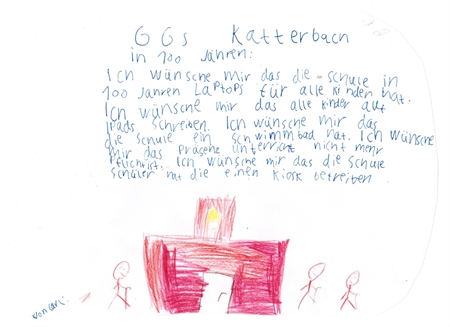 GGS Katterbach
in 100 Jahren:
Ich wünsche mir das die Schule in
100 Jahren Laptops für alle kinder hat.
Ich wünsche mir das alle kinder auf
ipads schreiben. Ich wünsche mir das
die schule ein schwimmbad hat. Ich wünsche
mir das präsenz unterricht nicht mehr
pflicht ist. Ich wünsche mir das die schule
schüler mit die einen kiosk betreiben.
von